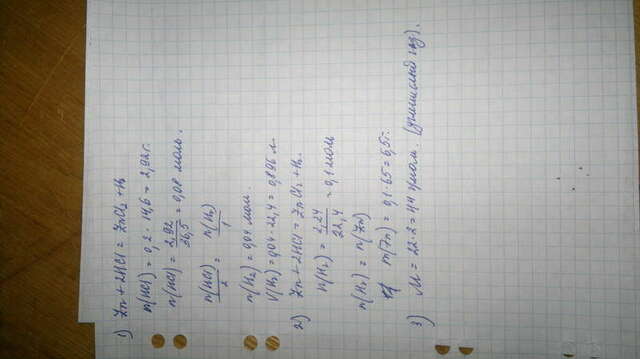 1) Zn + 2HCl = ZnCl₂ + H₂
m(HCl) = 0,2 · 14,6 = 2,92 г.
n(HCl) = 2,92/36,5 = 0,08 моль.
n(HCl)/2 = n(H₂)/1
n(H₂) = 0,04 моль.
V(H₂) = 0,04 · 22,4 = 0,896 л.
2) Zn + 2HCl = ZnCl₂ + H₂.
n(H₂) = 2,24/22,4 = 0,1 моль
n(H₂) = n(Zn)
m(Zn) = 0,1 · 65 = 6,5 г.
3) M = 22 · 2 = 44 г/моль. (углекислый газ).